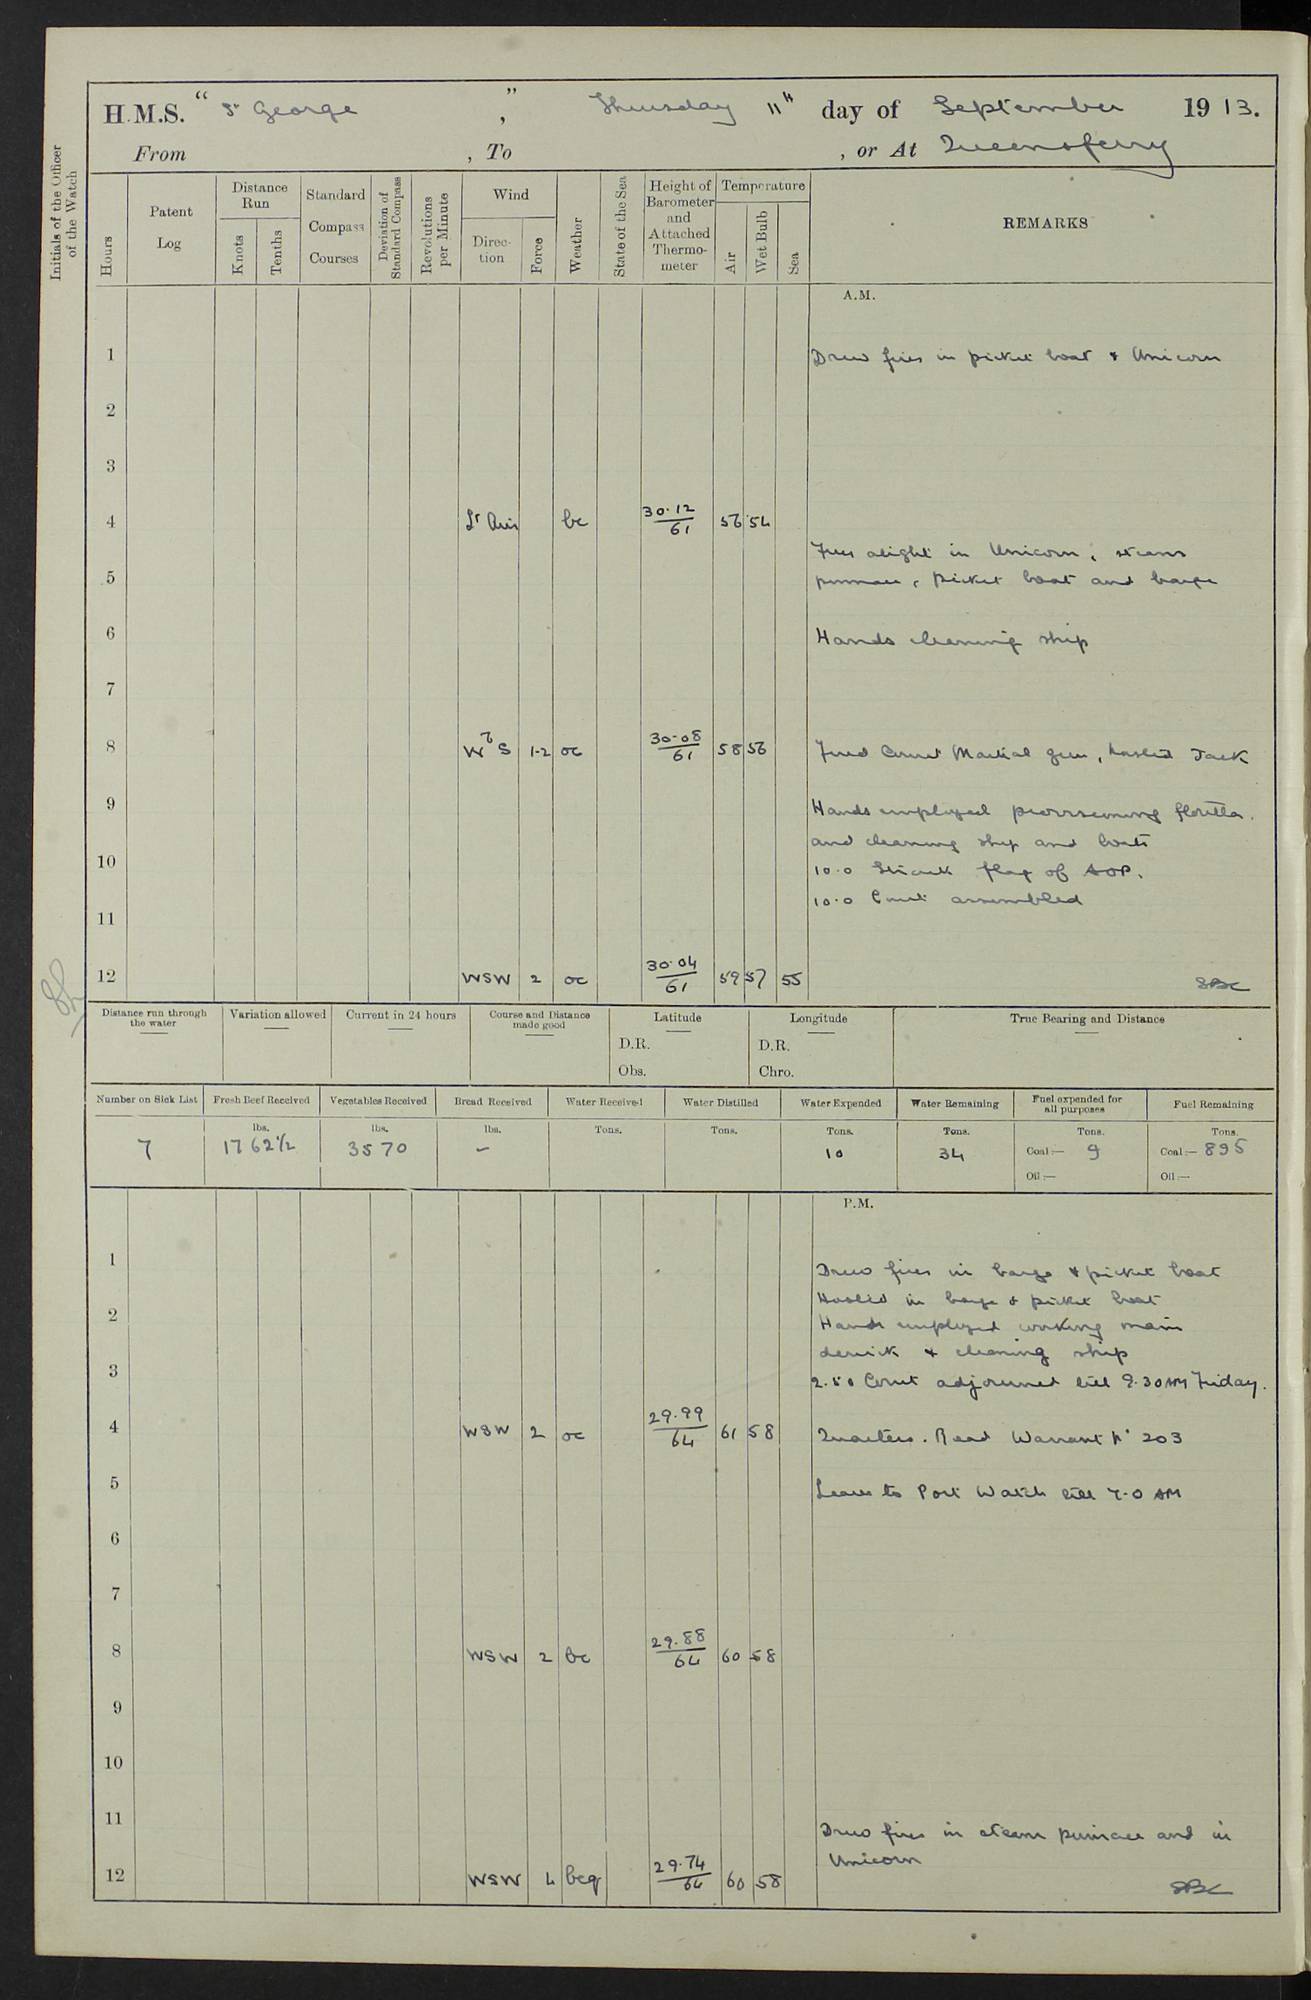 H.M.S. "St George", Thursday 11th day of September 1913.
From , To , or At Queensferry
Initials of the Officer of the Watch
Hours
Patent Log
Distance Run
Knots
Tenths
Standard Compass Courses
Deviation of Standard Compass
Revolutions per Minute
Wind
Direc-tion
Force
Weather
State of the Sea
Height of Barometer and Attached Thermo-meter
Temperature
Air
Wet Bulb
Sea
REMARKS
A.M.
1 Drew fires in picket boat & Unicorn
2
3
4 Lt Airs bc 30.12/61 56 54
Fires alight in Unicorn, steam
5 pinnace, picket boat and barge
6 Hands cleaning ship
7
8 WbS 1-2 oc 30.08/61 58 56 Fired Court Martial gun, hoisted Jack
9 Hands employed provisioning flotilla
and cleaning ship and boats
10 10.0 Struck flag of AOP.
10.0 Court assembled
11
12 WSW 2 oc 30.04/61 59 57 55 SBC
Distance run through the water
Variation allowed
Current in 24 hours
Course and Distance made good
Latitude
D.R.
Obs.
Longitude
D.R.
Chro.
True Bearing and Distance
Number on Sick List
Fresh Beef Received
Vegetables Received
Bread Received
Water Received
Water Distilled
Water Expended
Water Remaining
Fuel expended for all purposes
Fuel Remaining
7
lbs. 1762½
lbs. 3570
lbs. -
Tons.
Tons.
Tons. 10
Tons. 34
Tons. Coal:— 9
Oil:—
Tons. Coal:— 895
Oil:—
P.M.
1 Drew fires in barge & picket boat
Hoisted in barge & picket boat
2 Hands employed working main
derrick & cleaning ship
3 2.50 Court adjourned till 9.30 AM Friday.
4 WSW 2 oc 29.99/64 61 58 Quarters. Read Warrant No 203
5 Leave to Port Watch till 7.0 AM
6
7
8 WSW 2 bc 29.88/64 60 58
9
10
11 Drew fires in steam pinnace and in
Unicorn
12 WSW 4 bcq 29.74/64 60 58
SBC